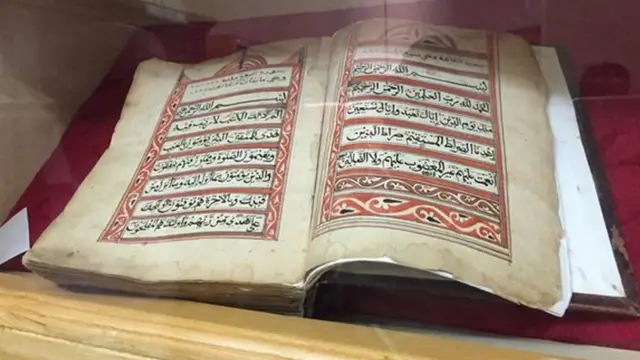 بسم الله الرحمن الرحيم
الحمد لله رب العلمين الرحمن الرحيم
ملك يوم الدين اياك نعبد واياك نستعين
اهدنا الصراط المستقيم صراط الذين
انعمت عليهم غير المغضوب عليهم ولا الضالين
بسم الله الرحمن الرحيم
الم ذلك الكتاب لا ريب فيه
هدى للمتقين الذين يؤمنون بالغيب
ويقيمون الصلوة ومما رزقنهم ينفقون
والذين يؤمنون بما انزل اليك وما انزل من
قبلك وبالاخرة هم يوقنون اولئك
على هدى من ربهم واولئك هم المفلحون